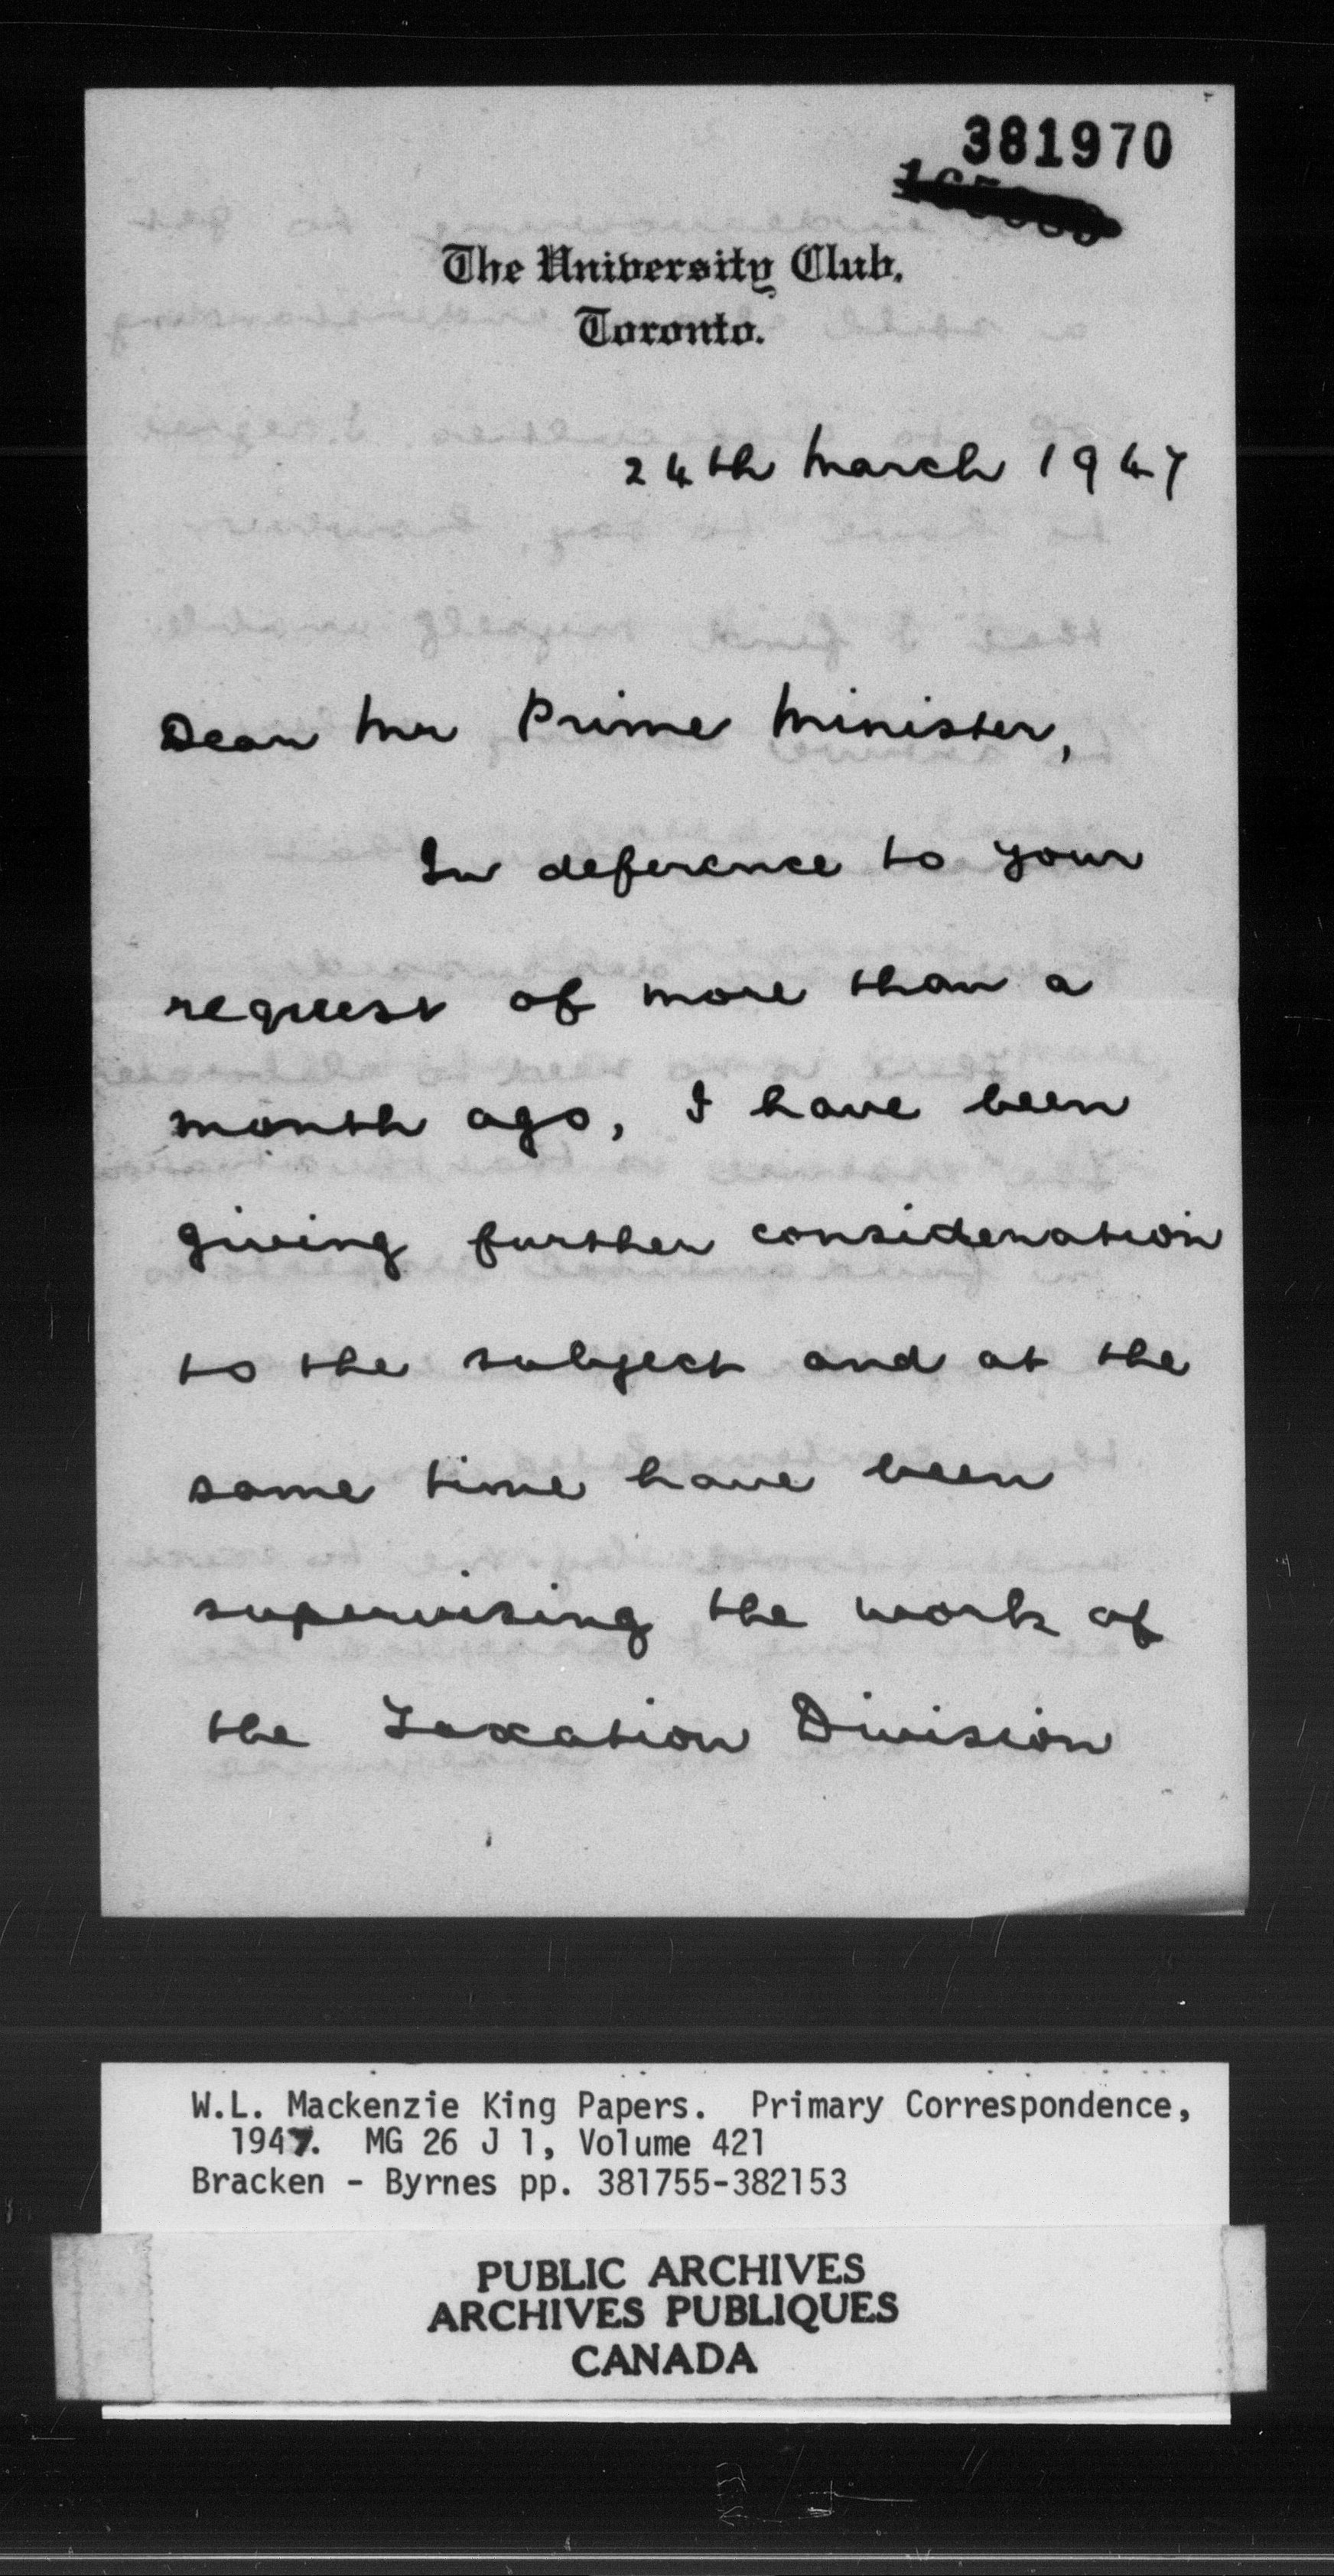 381970
The University Club,
Toronto.
24th March 1947
Dear Mr Prime Minister,
In deference to your
request of more than a
month ago, I have been
giving further consideration
to the subject and at the
same time have been
supervising the work of
the Taxation Division
W.L. Mackenzie King Papers. Primary Correspondence,
1947. MG 26 J 1, Volume 421
Bracken - Byrnes pp. 381755-382153
PUBLIC ARCHIVES
ARCHIVES PUBLIQUES
CANADA